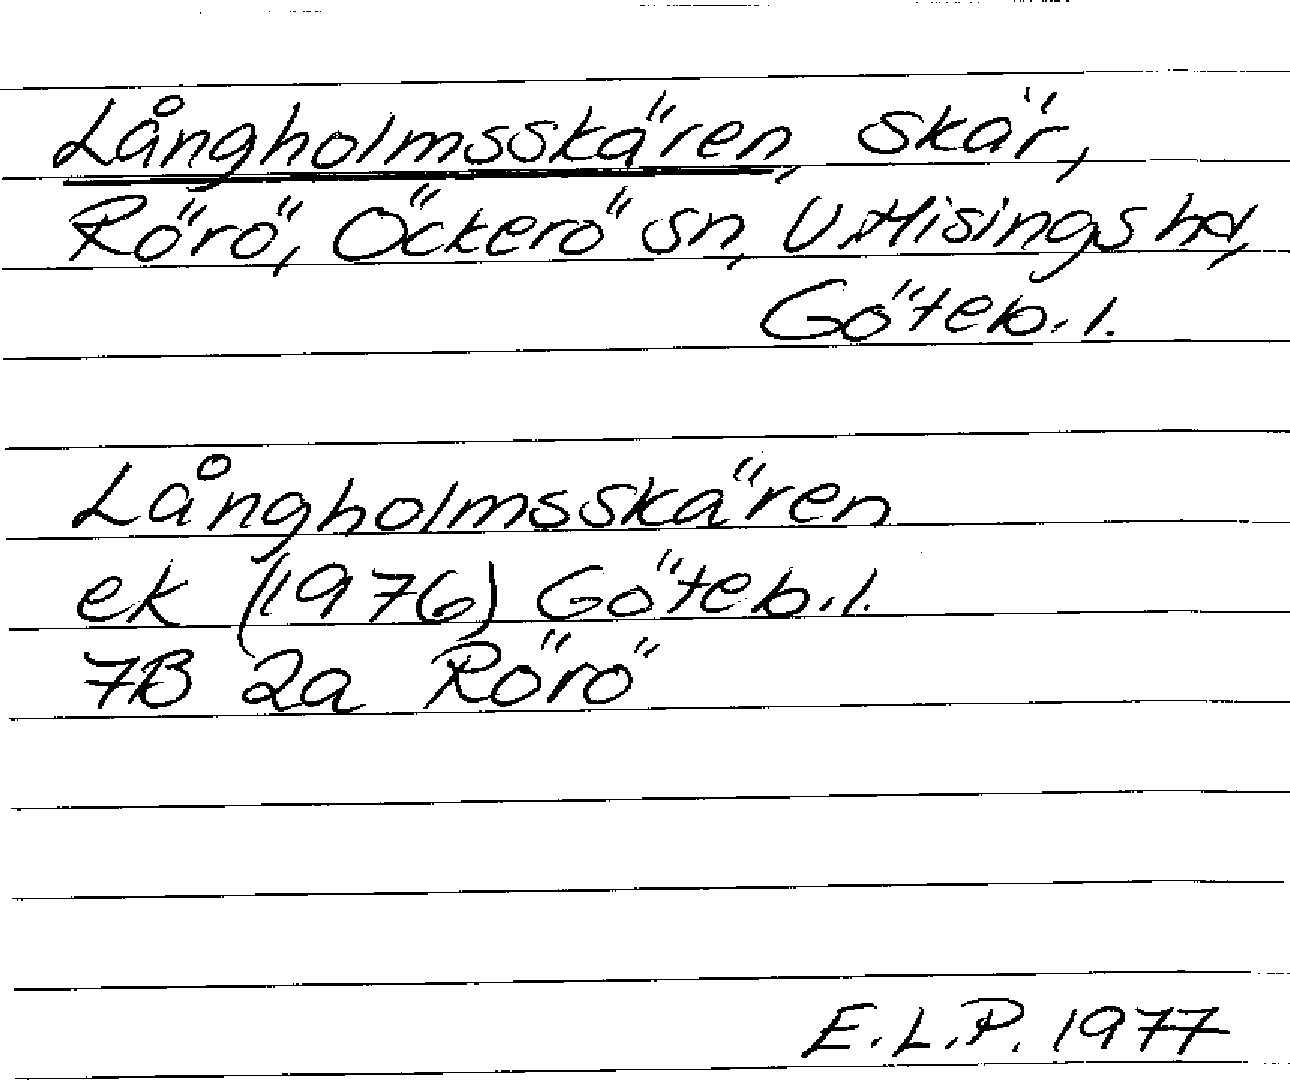 Långholmsskären, skär,
Rörö, Öckerö sn, V. Hisings hd,
Göteb. l.
Långholmsskären
ek (1976) Göteb. l.
7B 2a Rörö
E.L.P. 1977